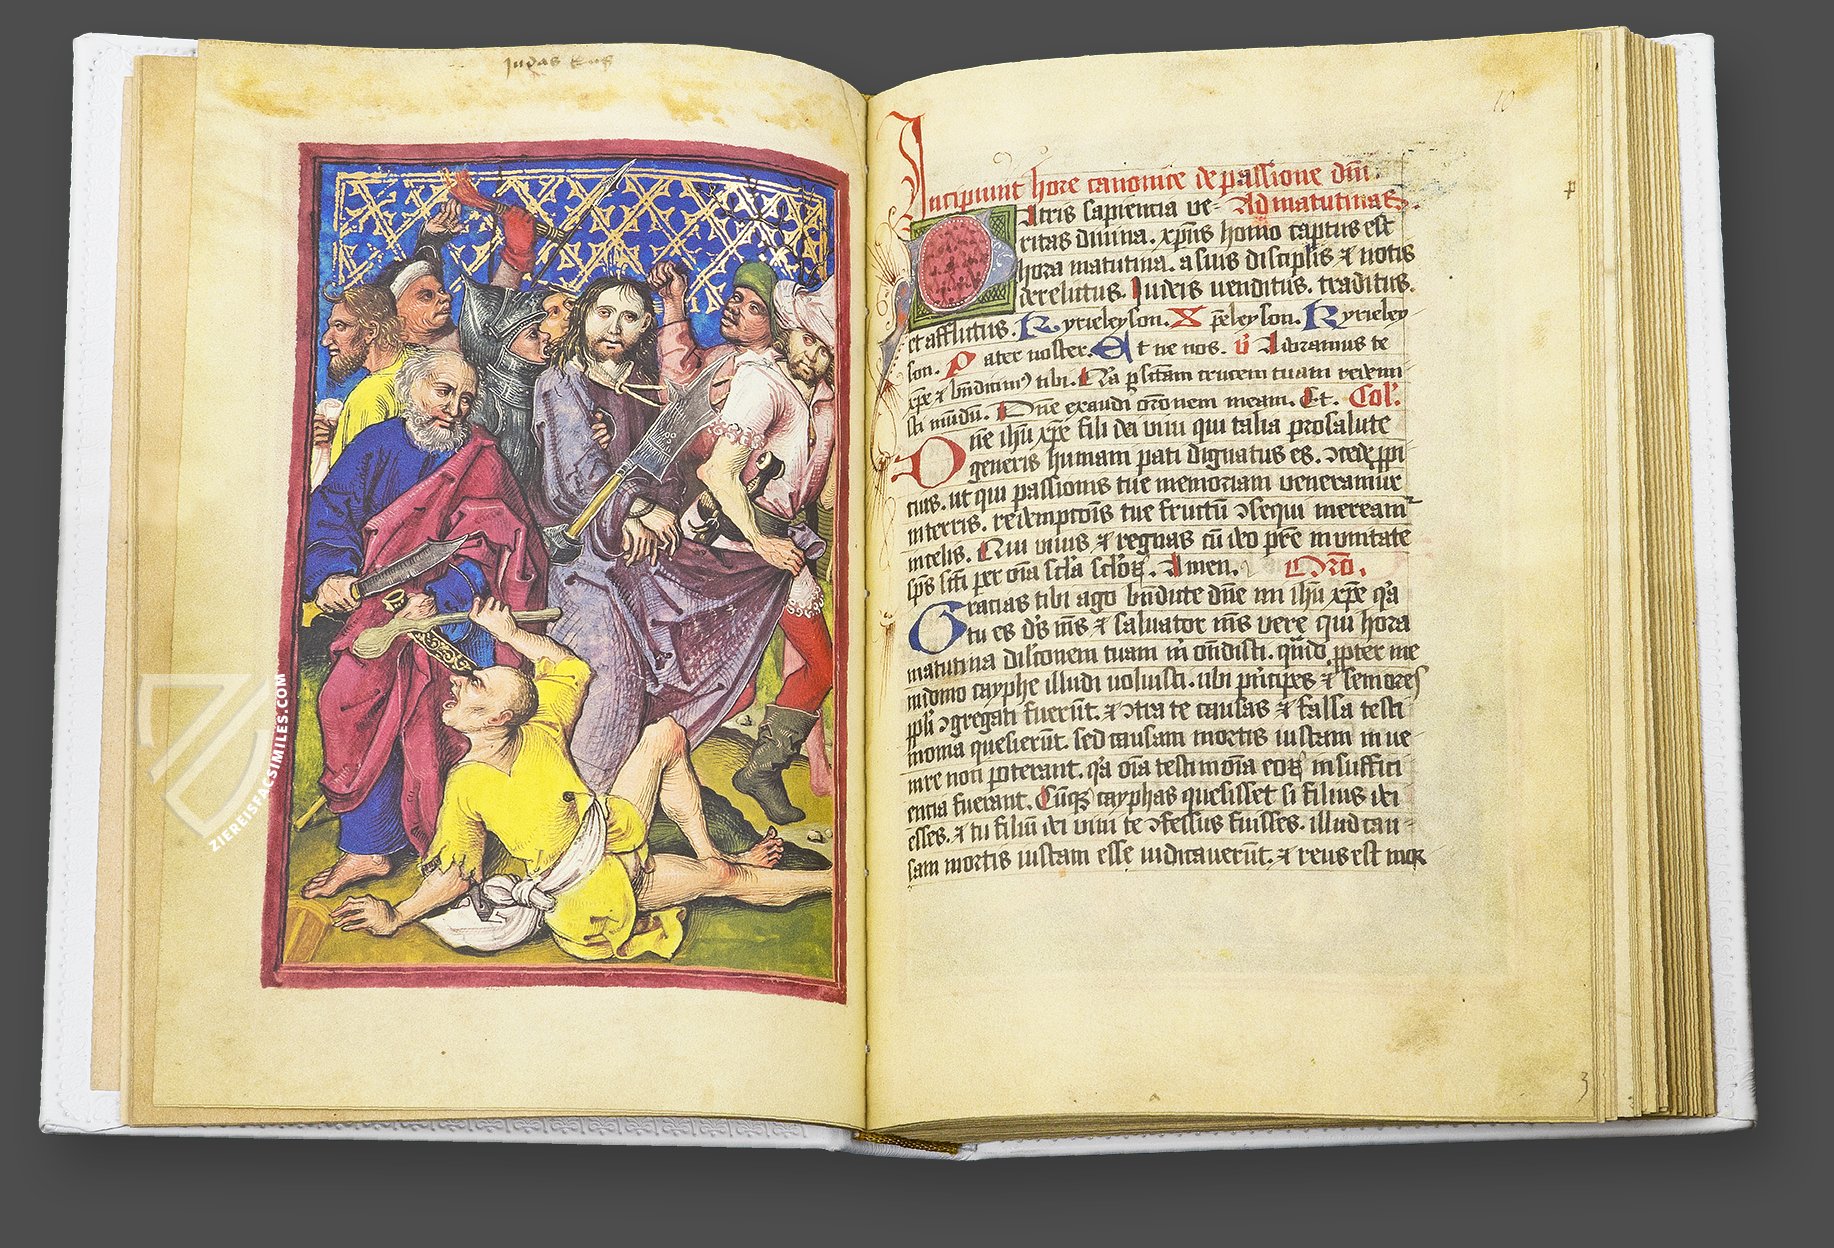 Judas kus
ZIEREISFACSIMILES.COM
10
Incipiunt hore canonice de passione dm̄.
Atris sapientia ve- Ad matutinas.
ritas diuina. xp̄us homo captus est
hora matutina. a suis discip̄lis ⁊ notis
derelictus. Iudeis uenditus. traditus.
et afflictus. Kyrieleyson. Xp̄eleyson. Kyrieley
son. Pater noster. Et ne nos. v̄ Adoramus te
xp̄e ⁊ bn̄dicim⁹ tibi. Q̄a p̄ sc̄tam crucem tuam redemi
sti mūdū. Dn̄e exaudi or̄onem meam. Et. Coll'.
Dn̄e ihū xp̄e fili dei viui qui talia pro salute
generis humani pati dignatus es. ꝯcede p̱pi
cius. ut qui passionis tue memoriam ueneramur
in terris. redemptōis tue fructū ꝯsequi meream-
in celis. Qui viuis ⁊ regnas cū deo pr̄e in vnitate
sp̄s sc̄ti per om̄a sc̄la sc̄loꝝ. Amen. Or̄o.
Gratias tibi ago bn̄dicte dn̄e mi ihū xp̄e q'a
tu es d's m̄s ⁊ saluator m̄s vere qui hora
matutina
in domo cayphe illudi uoluisti. ubi pn̄cipes ⁊ seniores
pp̄li ꝯgregati fuerūt. ⁊ ꝯtra te causas ⁊ falsa testi
monia quesierūt. sed causam mortis iustam in ue
nire non poterant. q'a om̄a testimōia eoꝝ insuffici
entia fuerant. Cūqꝫ cayphas quesisset si filius dei
esses. ⁊ tu filiū dei viui te ꝯfessus fuisses. illud cau-
sam mortis iustam esse iudicauerūt. ⁊ reus est mor
p
3